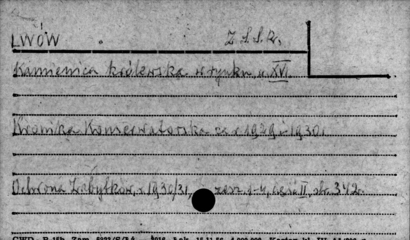 LWÓW Z.S.S.R.
Kamienica królewska w rynku, w. XVI.
Kronika Konserwatorska za r. 1929 i 1930.
Ochrona Zabytków, r. 1930/31, zesz. 1-4, część II, str. 342.